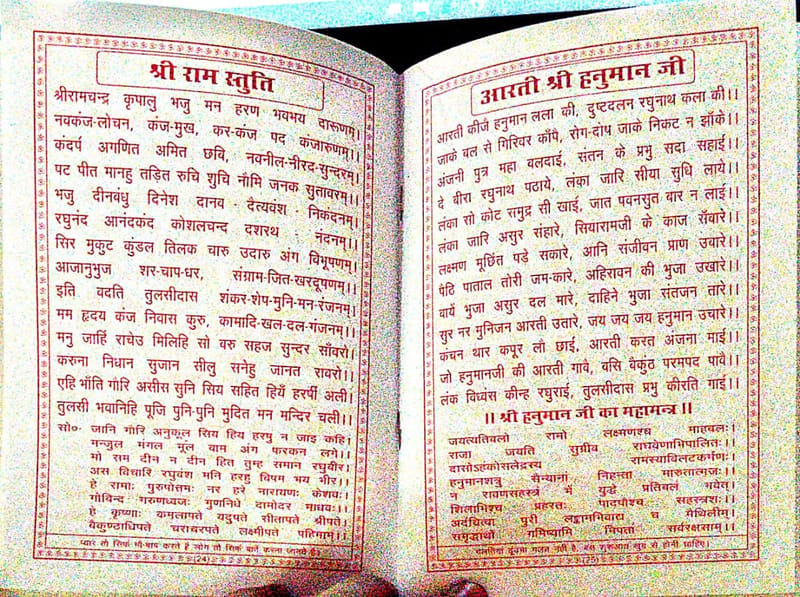 श्री राम स्तुति
श्रीरामचन्द्र कृपालु भजु मन हरण भवभय दारूणम्।
नवकंज-लोचन, कंज-मुख, कर-कंज पद कंजारुणम्।।
कंदर्प अगणित अमित छवि, नवनील-नीरद-सुन्दरम्।
पट पीत मानहु तड़ित रुचि शुचि नौमि जनक सुतावरम्।।
भजु दीनबंधु दिनेश दानव दैत्यवंश निकंदनम्।
रघुनंद आनंदकंद कोशलचन्द दशरथ नंदनम्।।
सिर मुकुट कुंडल तिलक चारु उदारु अंग विभूषणम्।
आजानुभुज शर-चाप-धर, संग्राम-जित-खरदूषणम्।।
इति वदति तुलसीदास शंकर-शेष-मुनि-मन-रंजनम्।
मम हृदय कंज निवास कुरु, कामादि-खल-दल-गंजनम्।।
मनु जाहिं राचेउ मिलिहि सो वरु सहज सुन्दर साँवरो।
करुना निधान सुजान सीलु सनेहु जानत रावरो।।
एहि भाँति गौरि असीस सुनि सिय सहित हियँ हरषीं अली।
तुलसी भवानिहि पूजि पुनि-पुनि मुदित मन मन्दिर चली।।
सो० जानि गौरि अनुकूल सिय हिय हरषु न जाइ कहि।
मन्जुल मंगल मूल बाम अंग फरकन लगे।।
मो सम दीन न दीन हित तुम्ह समान रघुबीर।
अस विचारि रघुवंश मनि हरहु विषम भव भीर।।
हे रामाः पुरुषोत्तमः नर हरे नारायणः केशवः।
गोविन्द गरुणध्वजः गुणनिधे दामोदर माधवः।।
हे कृष्णाः कमलापते यदुपते सीतापते श्रीपते।
वैकुण्ठाधिपते चराचरपते लक्ष्मीपते पाहिमाम्।।
प्यार तो सिर्फ माँ-बाप करते हैं लोग तो सिर्फ बातें करना जानते हैं।
(24)
आरती श्री हनुमान जी
आरती कीजै हनुमान लला की, दुष्टदलन रघुनाथ कला की।।
जाके बल से गिरिवर काँपै, रोग-दोष जाके निकट न झाँके।।
अंजनी पुत्र महा बलदाई, संतन के प्रभु सदा सहाई।।
दे बीरा रघुनाथ पठाये, लंका जारि सीया सुधि लाये।।
लंका सो कोट समुद्र सी खाई, जात पवनसुत बार न लाई।।
लंका जारि असुर संहारे, सियारामजी के काज सँवारे।।
लक्ष्मण मूर्छित पड़े सकारे, आनि संजीवन प्राण उबारे।।
पैठि पाताल तोरी जम-कारे, अहिरावन की भुजा उखारे।।
बायें भुजा असुर दल मारे, दाहिने भुजा संतजन तारे।।
सुर नर मुनिजन आरती उतारे, जय जय जय हनुमान उचारे।।
कंचन थार कपूर लौ छाई, आरती करत अंजना माई।।
जो हनुमानजी की आरती गावे, बसि बैकुंठ परमपद पावै।।
लंक विध्वंस कीन्ह रघुराई, तुलसीदास प्रभु कीरति गाई।।
।। श्री हनुमान जी का महामन्त्र ।।
जयत्यतिबलो रामो लक्ष्मणश्च माहबलः।
राजा जयति सुग्रीव राघवेणाभिपालितः।।
दासोऽहंकोसलेद्रस्य रामस्याविलटकर्मणः।
हनुमानशत्रु सैन्यानां निहन्ता मारुतात्मजः।।
न रावणसहस्त्रं में युद्धे प्रतिबलं भवेत्।
शिलाभिश्च प्रहरतः पादपैश्च सहस्त्रशः।।
अर्दयित्वा पुरी लङ्कामभिवाद्य च मैथिलीम्।
समृद्धार्थो गमिष्यामि मिषतां सर्वरक्षसाम्।।
(25)